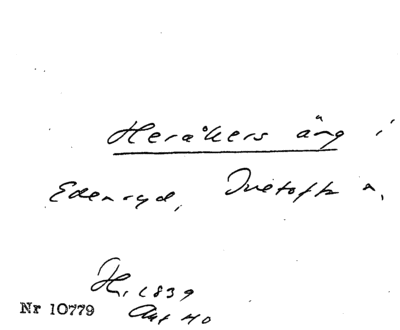 Heråkers äng i
Edenryd, Ivetofta s.
H. 1839
Akt 40
Nr 10779